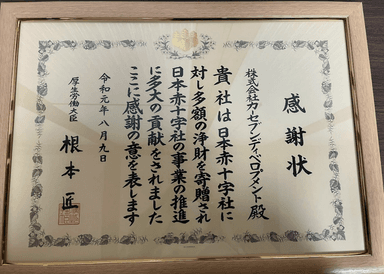 感謝状
株式会社力セブンディベロプメント殿
貴社は日本赤十字社に
対し多額の浄財を寄贈され
日本赤十字社の事業の推進
に多大の貢献をされました
ここに感謝の意を表します
令和元年八月九日
厚生労働大臣
根本匠